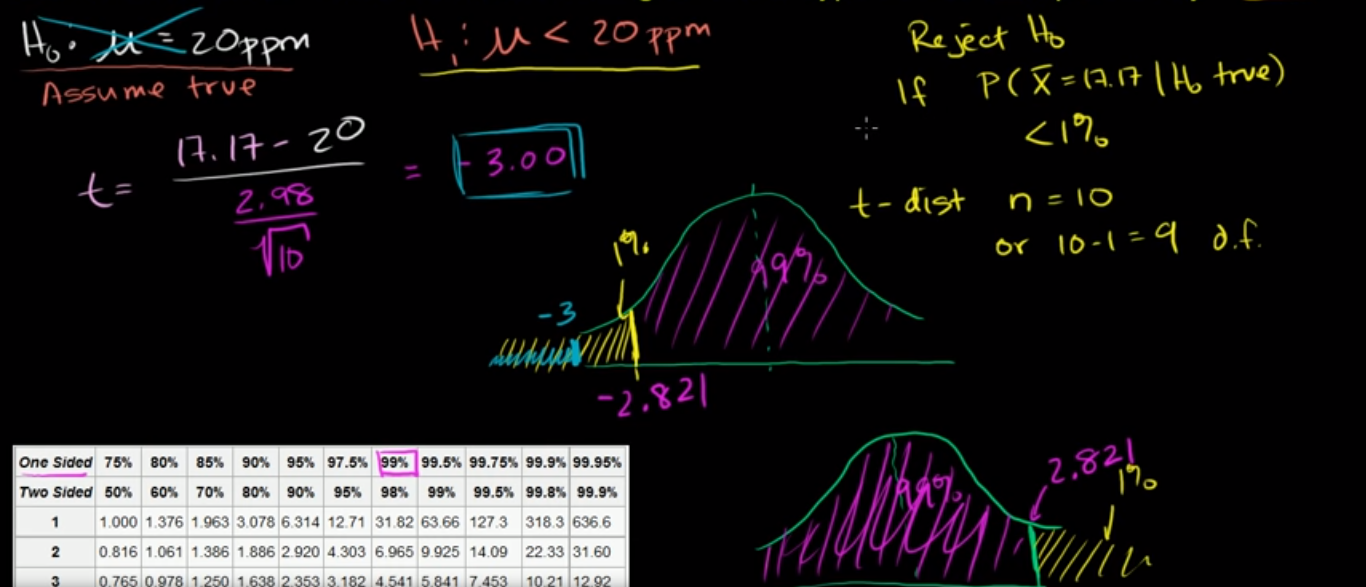 H₀: μ = 20ppm
Assume true
H₁: μ < 20 ppm
Reject H₀
If P( X̄ = 17.17 | H₀ true)
< 1%
t = (17.17 - 20) / (2.98 / √10) = -3.00
t - dist n = 10
or 10 - 1 = 9 d.f.
1%
99%
-3
-2.821
2.821
1%
99%
One Sided 75% 80% 85% 90% 95% 97.5% 99% 99.5% 99.75% 99.9% 99.95%
Two Sided 50% 60% 70% 80% 90% 95% 98% 99% 99.5% 99.8% 99.9%
1 1.000 1.376 1.963 3.078 6.314 12.71 31.82 63.66 127.3 318.3 636.6
2 0.816 1.061 1.386 1.886 2.920 4.303 6.965 9.925 14.09 22.33 31.60
3 0.765 0.978 1.250 1.638 2.353 3.182 4.541 5.841 7.453 10.21 12.92